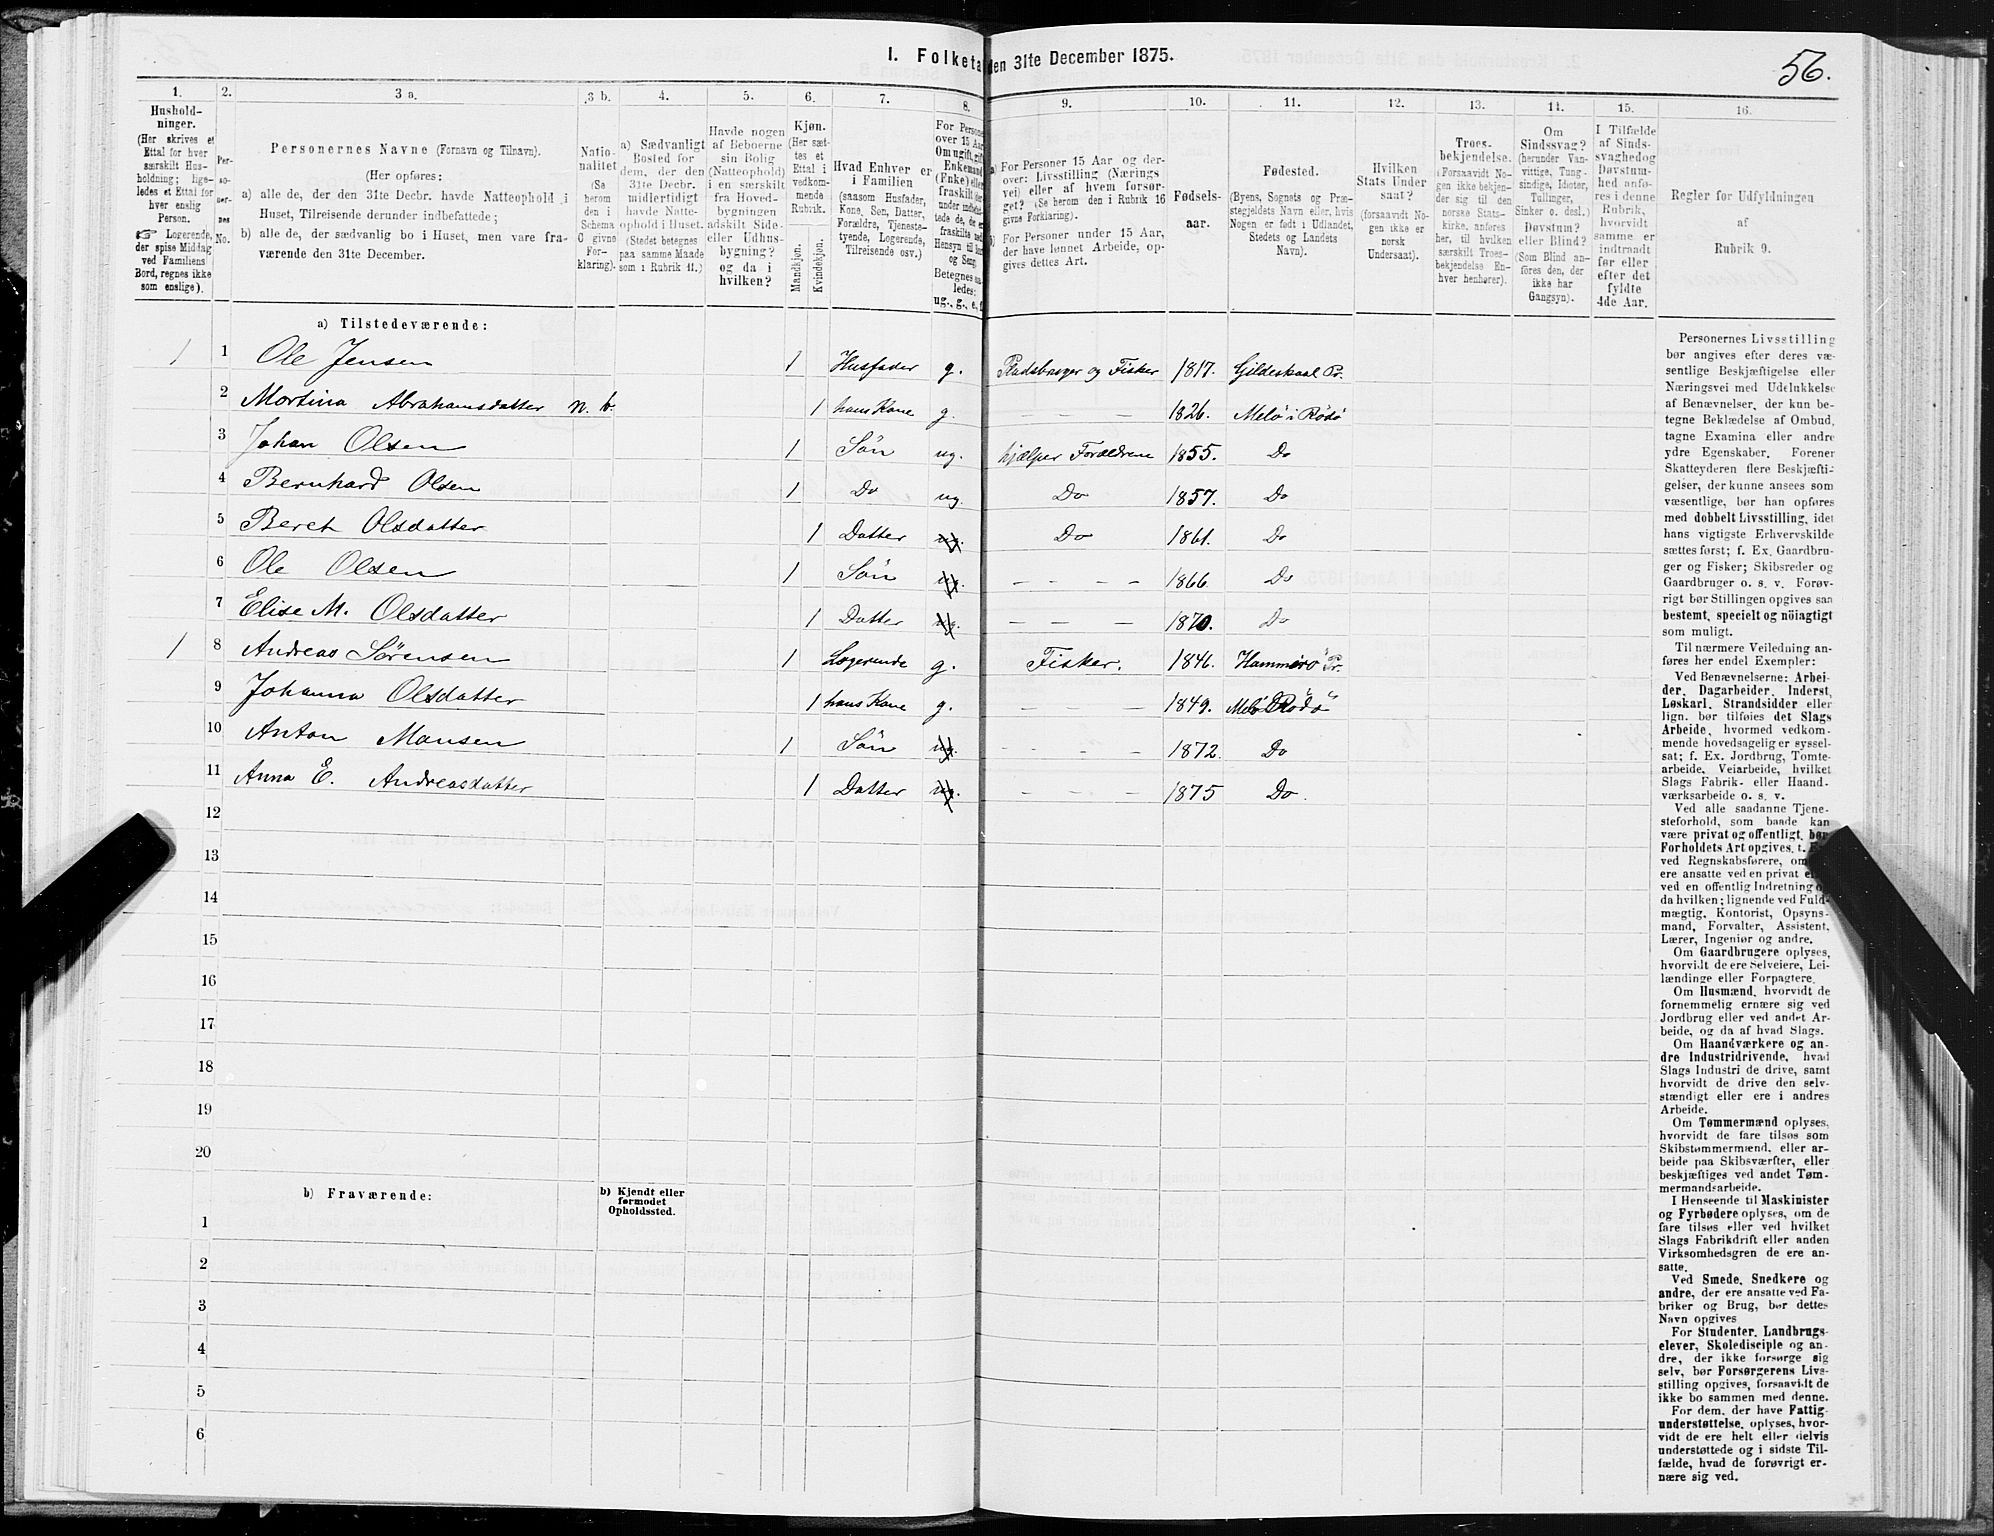 56.
I. Folketa den 31te December 1875.
1. 2. 3 a. 3 b. 4. 5. 6. 7. 8. 9. 10. 11. 12. 13. 14. 15. 16.
Hushold-
ninger.
(Her skrives et
Ettal for hver
særskilt Hus-
holdning; lige-
ledes et Ettal for
hver enslig
Person.
☞ Logerende,
der spise Middag
ved Familiens
Bord, regnes ikke
som enslige).
Per-
so-
ner-
nes
No.
Personernes Navne (Fornavn og Tilnavn).
(Her opføres:
a) alle de, der den 31te Decbr. havde Natteophold i
Huset, Tilreisende derunder indbefattede;
b) alle de, der sædvanlig bo i Huset, men vare fra-
værende den 31te December.
Natio-
nalitet
(Se
herom
den i
Schema
O givne
For-
klaring).
a) Sædvanligt
Bosted for
dem, der den
31te Decbr.
midlertidigt
havde Natte-
ophold i Huset.
(Stedet betegnes
paa samme Maade
som i Rubrik 11.)
Havde nogen
af Beboerne
sin Bolig
(Natteophold)
i en særskilt
fra Hoved-
bygningen
adskilt Side-
eller Udhus-
bygning?
og da i
hvilken?
Kjøn.
(Her sæt-
tes et
Ettal i
vedkom-
mende
Rubrik.
Mandkjøn.
Kvindekjøn.
Hvad Enhver er
i Familien
(saasom Husfader,
Kone, Søn, Datter,
Forældre, Tjeneste-
tyende, Logerende,
Tilreisende osv.)
For Persone
over 15 Aar
Om ugift, gift
Enkemand
(Enke) elle
fraskilt de
under indbe
tede de, de e
fraskilte ved
Hensyn til bor
og Seng.
Betegnes saa
ledes:
ug., g., e., f
a) For Personer 15 Aar og der-
over: Livsstilling (Nærings
vei) eller af hvem forsør-
get? (Se herom den i Rubrik 16
givne Forklaring).
b) For Personer under 15 Aar,
der have lønnet Arbeide, op-
gives dettes Art.
Fødsels-
aar.
Fødested.
(Byens, Sognets og Præ-
stegjeldets Navn eller, hvis
Nogen er født i Udlandet,
Stedets og Landets
Navn).
Hvilken
Stats Under
saat?
(forsaavidt No-
gen ikke er
norsk
Undersaat).
Troes-
bekjendelse.
(Forsaavidt No-
gen ikke bekjen-
der sig til den
norske Stats-
kirke, anføres
her, til hvilken
særskilt Troes-
bekjendelse En-
hver henhører).
Om
Sindssvag?
(herunder Van-
vittige, Tung-
sindige, Idioter,
Tullinger,
Sinker o. desl.)
Døvstum?
eller Blind?
(Som Blind an-
føres den, der
ikke har
Gangsyn).
I Tilfælde
af Sinds-
svaghed og
Døvstum-
hed anfø-
res i denne
Rubrik,
hvorvidt
samme er
indtraadt
før eller
efter det
fyldte
4de Aar.
Regler for Udfyldningen
af
Rubrik 9.
a) Tilstedeværende:
1 1 Ole Jensen 1 Husfader g. Pladsbruger og Fisker 1817. Gildeskaal Pr.
2 Mortina Abrahamsdatter n. b. 1 hans Kone g. — — — 1826. Melö i Rödö
3 Johan Olsen 1 Sön ug. hjælper Forældrene 1855. Do
4 Bernhard Olsen 1 Do ug. Do 1857. Do
5 Beret Olsdatter 1 Datter ug. Do 1861. Do
6 Ole Olsen 1 Sön ug. — — — 1866. Do
7 Elise M. Olsdatter 1 Datter ug. — — — 1870. Do
1 8 Andreas Sörensen 1 Logerende g. Fisker. 1846. Hammerö Pr.
9 Johanna Olsdatter 1 hans Kone g. — — — 1849. Melö Rödö
10 Anton Monsen 1 Sön ug. — — — 1872. Do
11 Anna E. Andreasdatter 1 Datter ug. — — — 1875 Do.
12
13
14
15
16
17
18
19
20
b) Fraværende:
b) Kjendt eller
formodet
Opholdssted.
1
2
3
4
5
6
Personernes Livsstilling
bør angives efter deres væ-
sentlige Beskjæftigelse eller
Næringsvei med Udelukkelse
af Benævnelser, der kun be-
tegne Beklædelse af Ombud,
tagne Examina eller andre
ydre Egenskaber. Forener
Skatteyderen flere Beskjæfti-
gelser, der kunne ansees som
væsentlige, bør han opføres
med dobbelt Livsstilling, idet
hans vigtigste Erhvervskilde
sættes først; f. Ex. Gaardbru-
ger og Fisker; Skibsreder og
Gaardbruger o. s. v. Forøv-
rigt bør Stillingen opgives saa
bestemt, specielt og nöiagtigt
som muligt.
Til nærmere Veiledning an-
føres her endel Exempler:
Ved Benævnelserne: Arbei-
der, Dagarbeider, Inderst,
Løskarl, Strandsidder eller
lign. bør tilføies det Slags
Arbeide, hvormed vedkom-
mende hovedsagelig er syssel-
sat; f. Ex. Jordbrug, Tomte-
arbeide, Veiarbeide, hvilket
Slags Fabrik- eller Haand-
værksarbeide o. s. v.
Ved alle saadanne Tjene-
steforhold, som baade kan
være privat og offentligt, bør
Forholdets Art opgives, f. E
ved Regnskabsførere, om
ere ansatte ved en privat e
ved en offentlig Indretning o
da hvilken; lignende ved Fuld-
mægtig, Kontorist, Opsyns-
mand, Forvalter, Assistent,
Lærer, Ingeniør og andre.
Om Gaardbrugere oplyses,
hvorvidt de ere Selveiere, Lei-
lændinge eller Forpagtere.
Om Husmænd, hvorvidt de
fornemmelig ernære sig ved
Jordbrug eller ved andet Ar-
beide, og da af hvad Slags.
Om Haandværkere og an-
dre Industridrivende, hvad
Slags Industri de drive, samt
hvorvidt de drive den selv-
stændigt eller ere i andres
Arbeide.
Om Tømmermænd oplyses,
hvorvidt de fare tilsøs som
Skibstømmermænd, eller ar-
beide paa Skibsværfter, eller
beskjæftiges ved andet Tøm-
mermandsarbeide.
I Henseende til Maskinister
og Fyrbødere oplyses, om de
fare tilsøs eller ved hvilket
Slags Fabrikdrift eller anden
Virksomhedsgren de ere an-
satte.
Ved Smede, Snedkere og
andre, der ere ansatte ved Fa-
briker og Brug, bør dettes
Navn opgives
For Studenter, Landbrugs-
elever, Skoledisciple og an-
dre, der ikke forsørge sig
selv, bør Forsørgerens Livs-
stilling opgives, forsaavidt de
ikke bo sammen med denne.
For dem, der have Fattig-
understøttelse, oplyses, hvor-
vidt de ere helt eller delvis
understøttede og i sidste Til-
fælde, hvad de forøvrigt er-
nære sig ved.